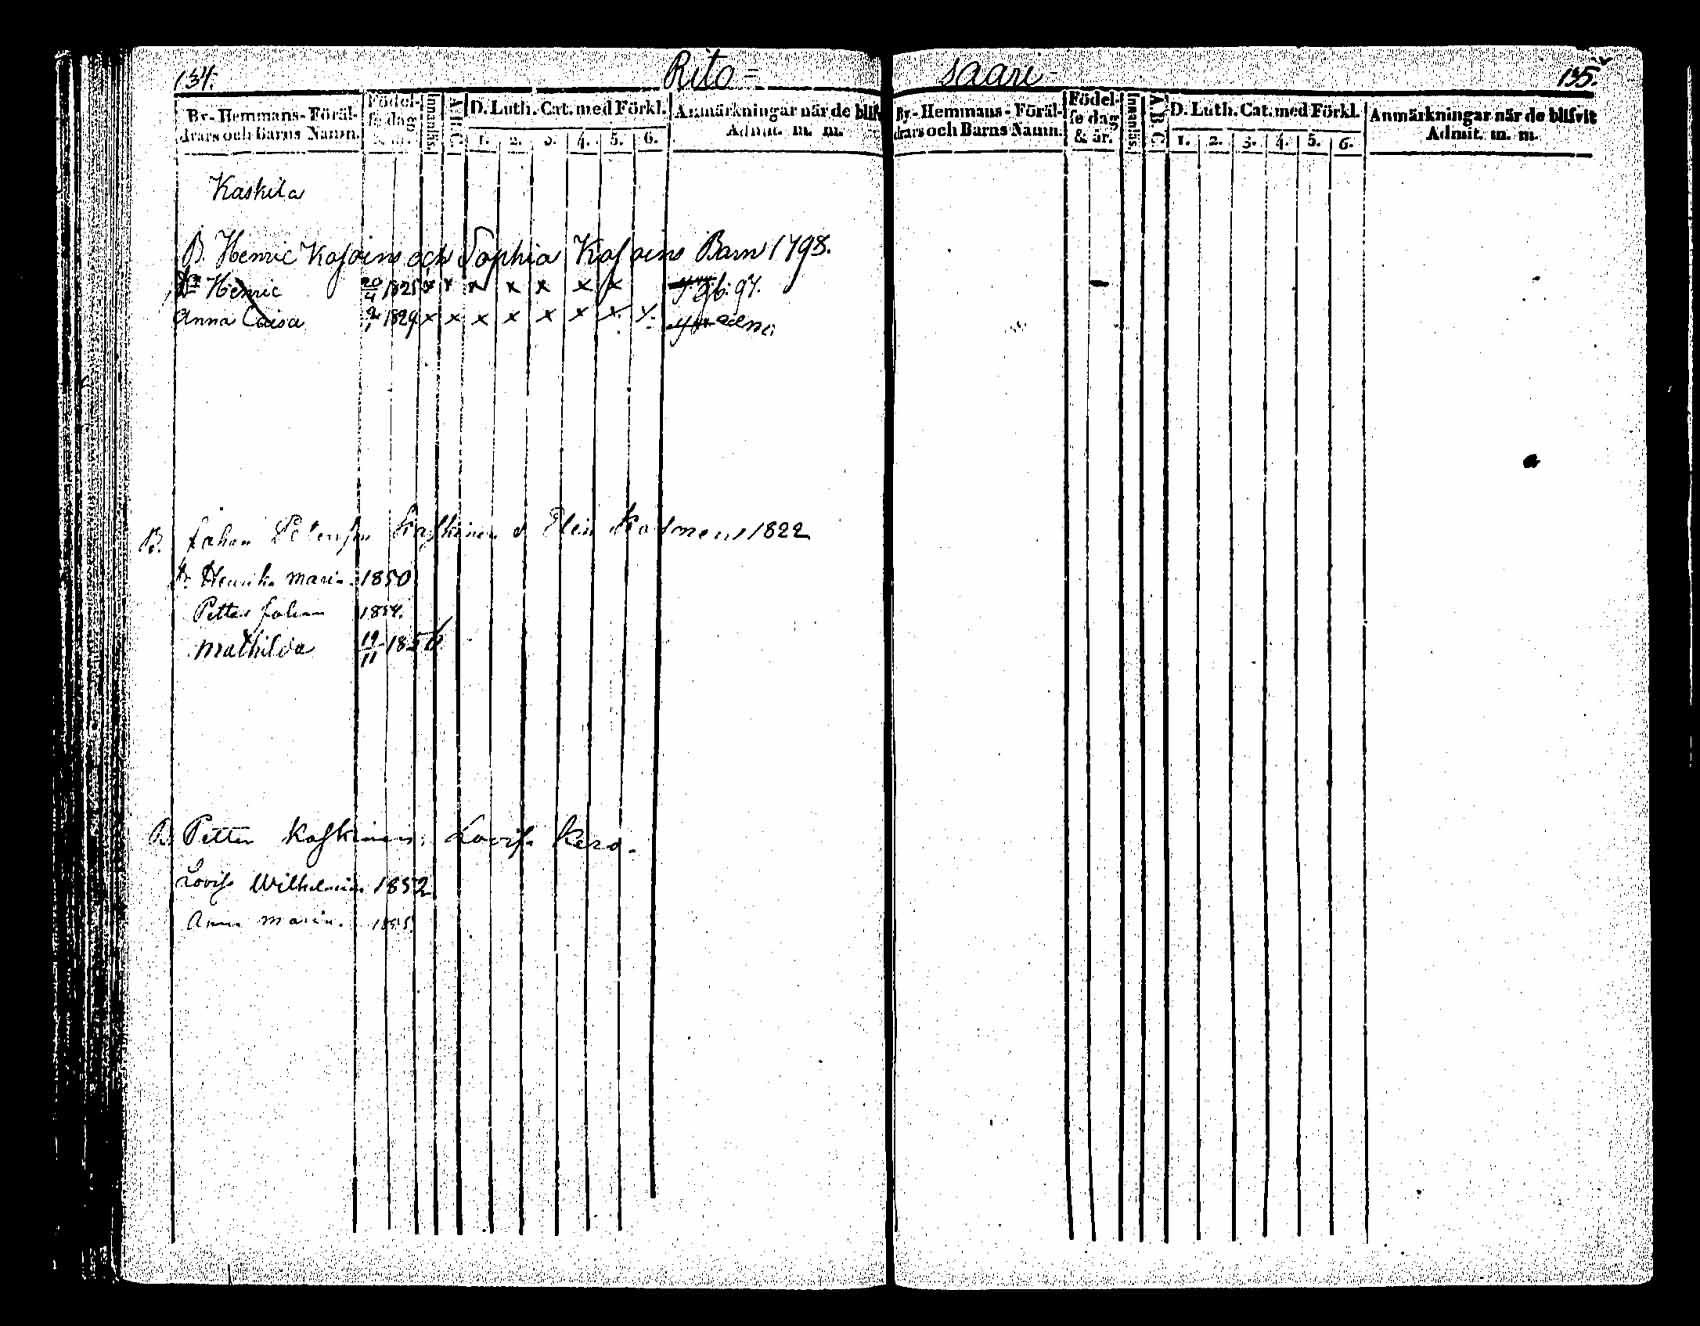 134.
Rito=
By-Hemmans-Föräl-
drars och Barns Namn.
Födel-
se dag
Innanläs.
A B C.
D. Luth. Cat. med Förkl.
1. 2. 3. 4. 5. 6.
Anmärkningar när de blifv
Admit. m. m.
Kaskila
B. Henric och Sophia Barn 1798.
Henric 20/4 1825 x x x x x x x
Anna Caisa 2/1 1829 x x x x x x x x
B. Johan & Elin 1822
Henrika Maria 1850
Petter Johan 1854.
Mathilda 19/11 1856
B. Petter Kaskinen. Lovisa Kero.
Lovisa Wilhelmina 1852
Anna Maria. 1855
saari
135
By-Hemmans-Föräl-
drars och Barns Namn.
Födel-
se dag
& år.
Innanläs.
A B C.
D. Luth. Cat. med Förkl.
1. 2. 3. 4. 5. 6.
Anmärkningar när de blifvit
Admit. m. m.